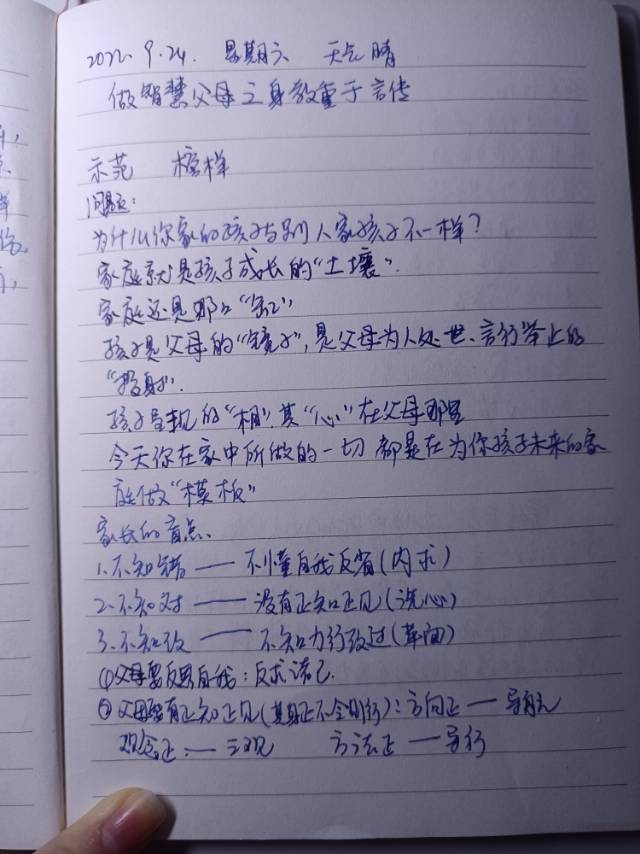 2022.9.24. 星期六 天气晴
做智慧父母之身教重于言传
示范 榜样
问题:
为什么你家的孩子与别人家孩子不一样?
家庭就是孩子成长的“土壤”.
家庭还是那口“缸”
孩子是父母的“镜子”,是父母为人处世、言行举止的
“投射”.
孩子呈现的“相”其“心”在父母那里
今天你在家中所做的一切都是在为你孩子未来的家
庭做“模板”
家长的盲点、
1.不知错——不懂自我反省(内求)
2.不知对——没有正知正见(洗心)
3.不知改——不知力行改过(革面)
①父母要反思自我:反求诸己.
②父母要有正知正见(其身正不令则行):方向正—导航
观念正:—三观 方法正—导行